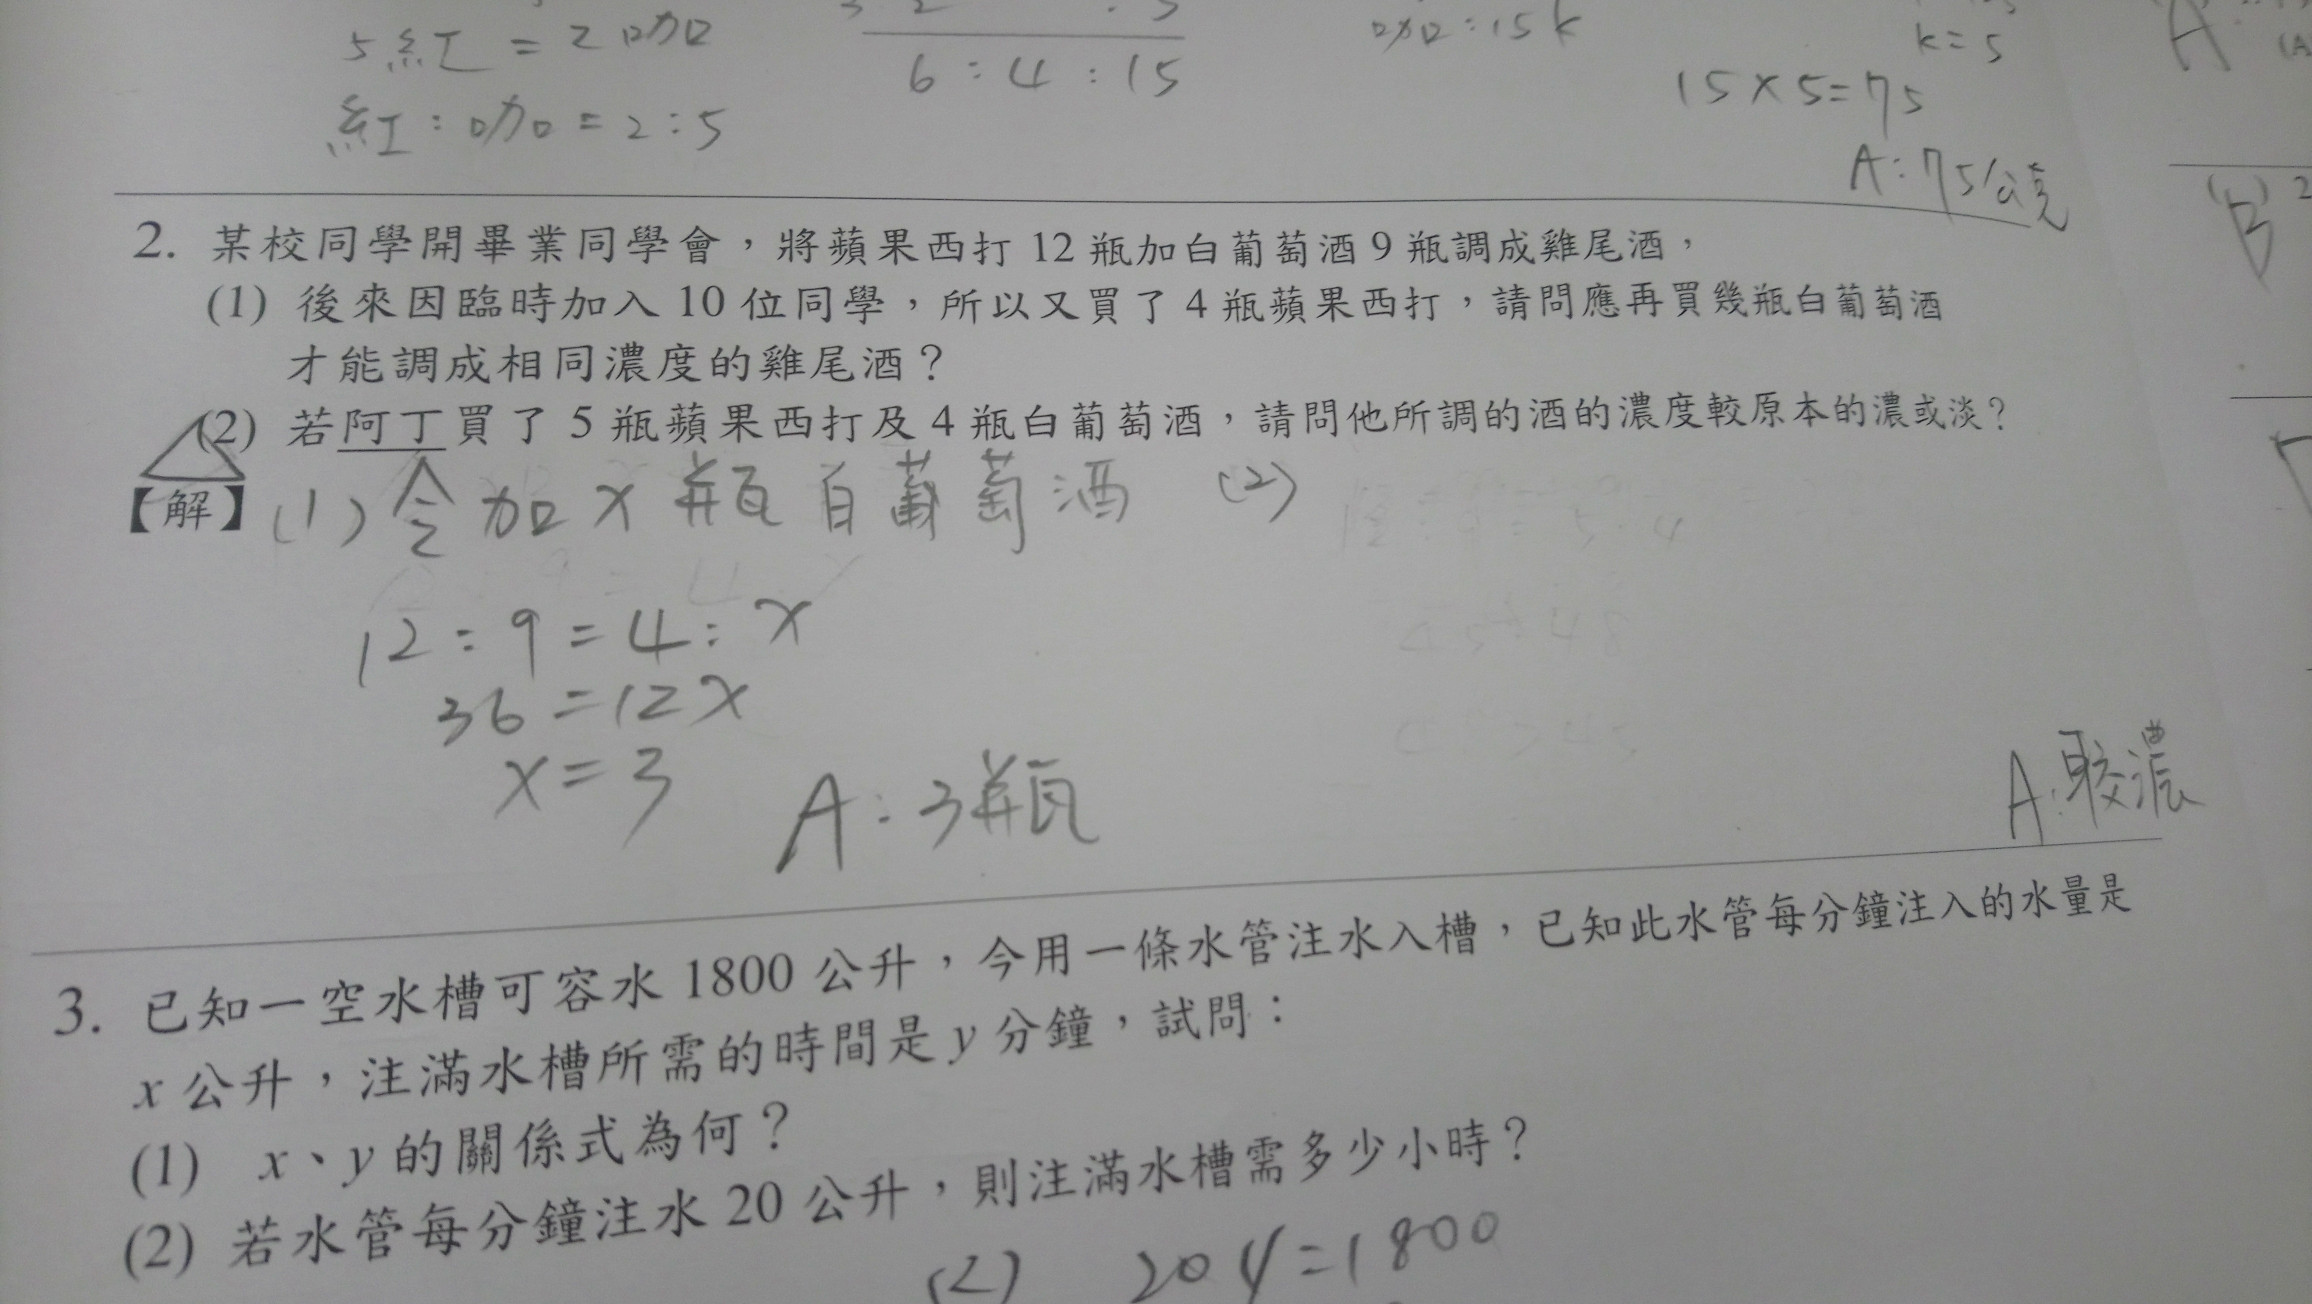 5紅 = 2咖
6 : 4 : 15
咖 : 15k
k = 5
紅 : 咖 = 2 : 5
15 × 5 = 75
A : 75公克
2. 某校同學開畢業同學會，將蘋果西打 12 瓶加白葡萄酒 9 瓶調成雞尾酒，
(1) 後來因臨時加入 10 位同學，所以又買了 4 瓶蘋果西打，請問應再買幾瓶白葡萄酒
才能調成相同濃度的雞尾酒？
(2) 若阿丁買了 5 瓶蘋果西打及 4 瓶白葡萄酒，請問他所調的酒的濃度較原本的濃或淡？
【解】 (1) 令加 x 瓶白葡萄酒 (2)
12 : 9 = 4 : x
36 = 12x
x = 3
A : 3瓶
A : 較濃
3. 已知一空水槽可容水 1800 公升，今用一條水管注水入槽，已知此水管每分鐘注入的水量是
x 公升，注滿水槽所需的時間是 y 分鐘，試問：
(1) x、y 的關係式為何？
(2) 若水管每分鐘注水 20 公升，則注滿水槽需多少小時？
(2) 20y = 1800